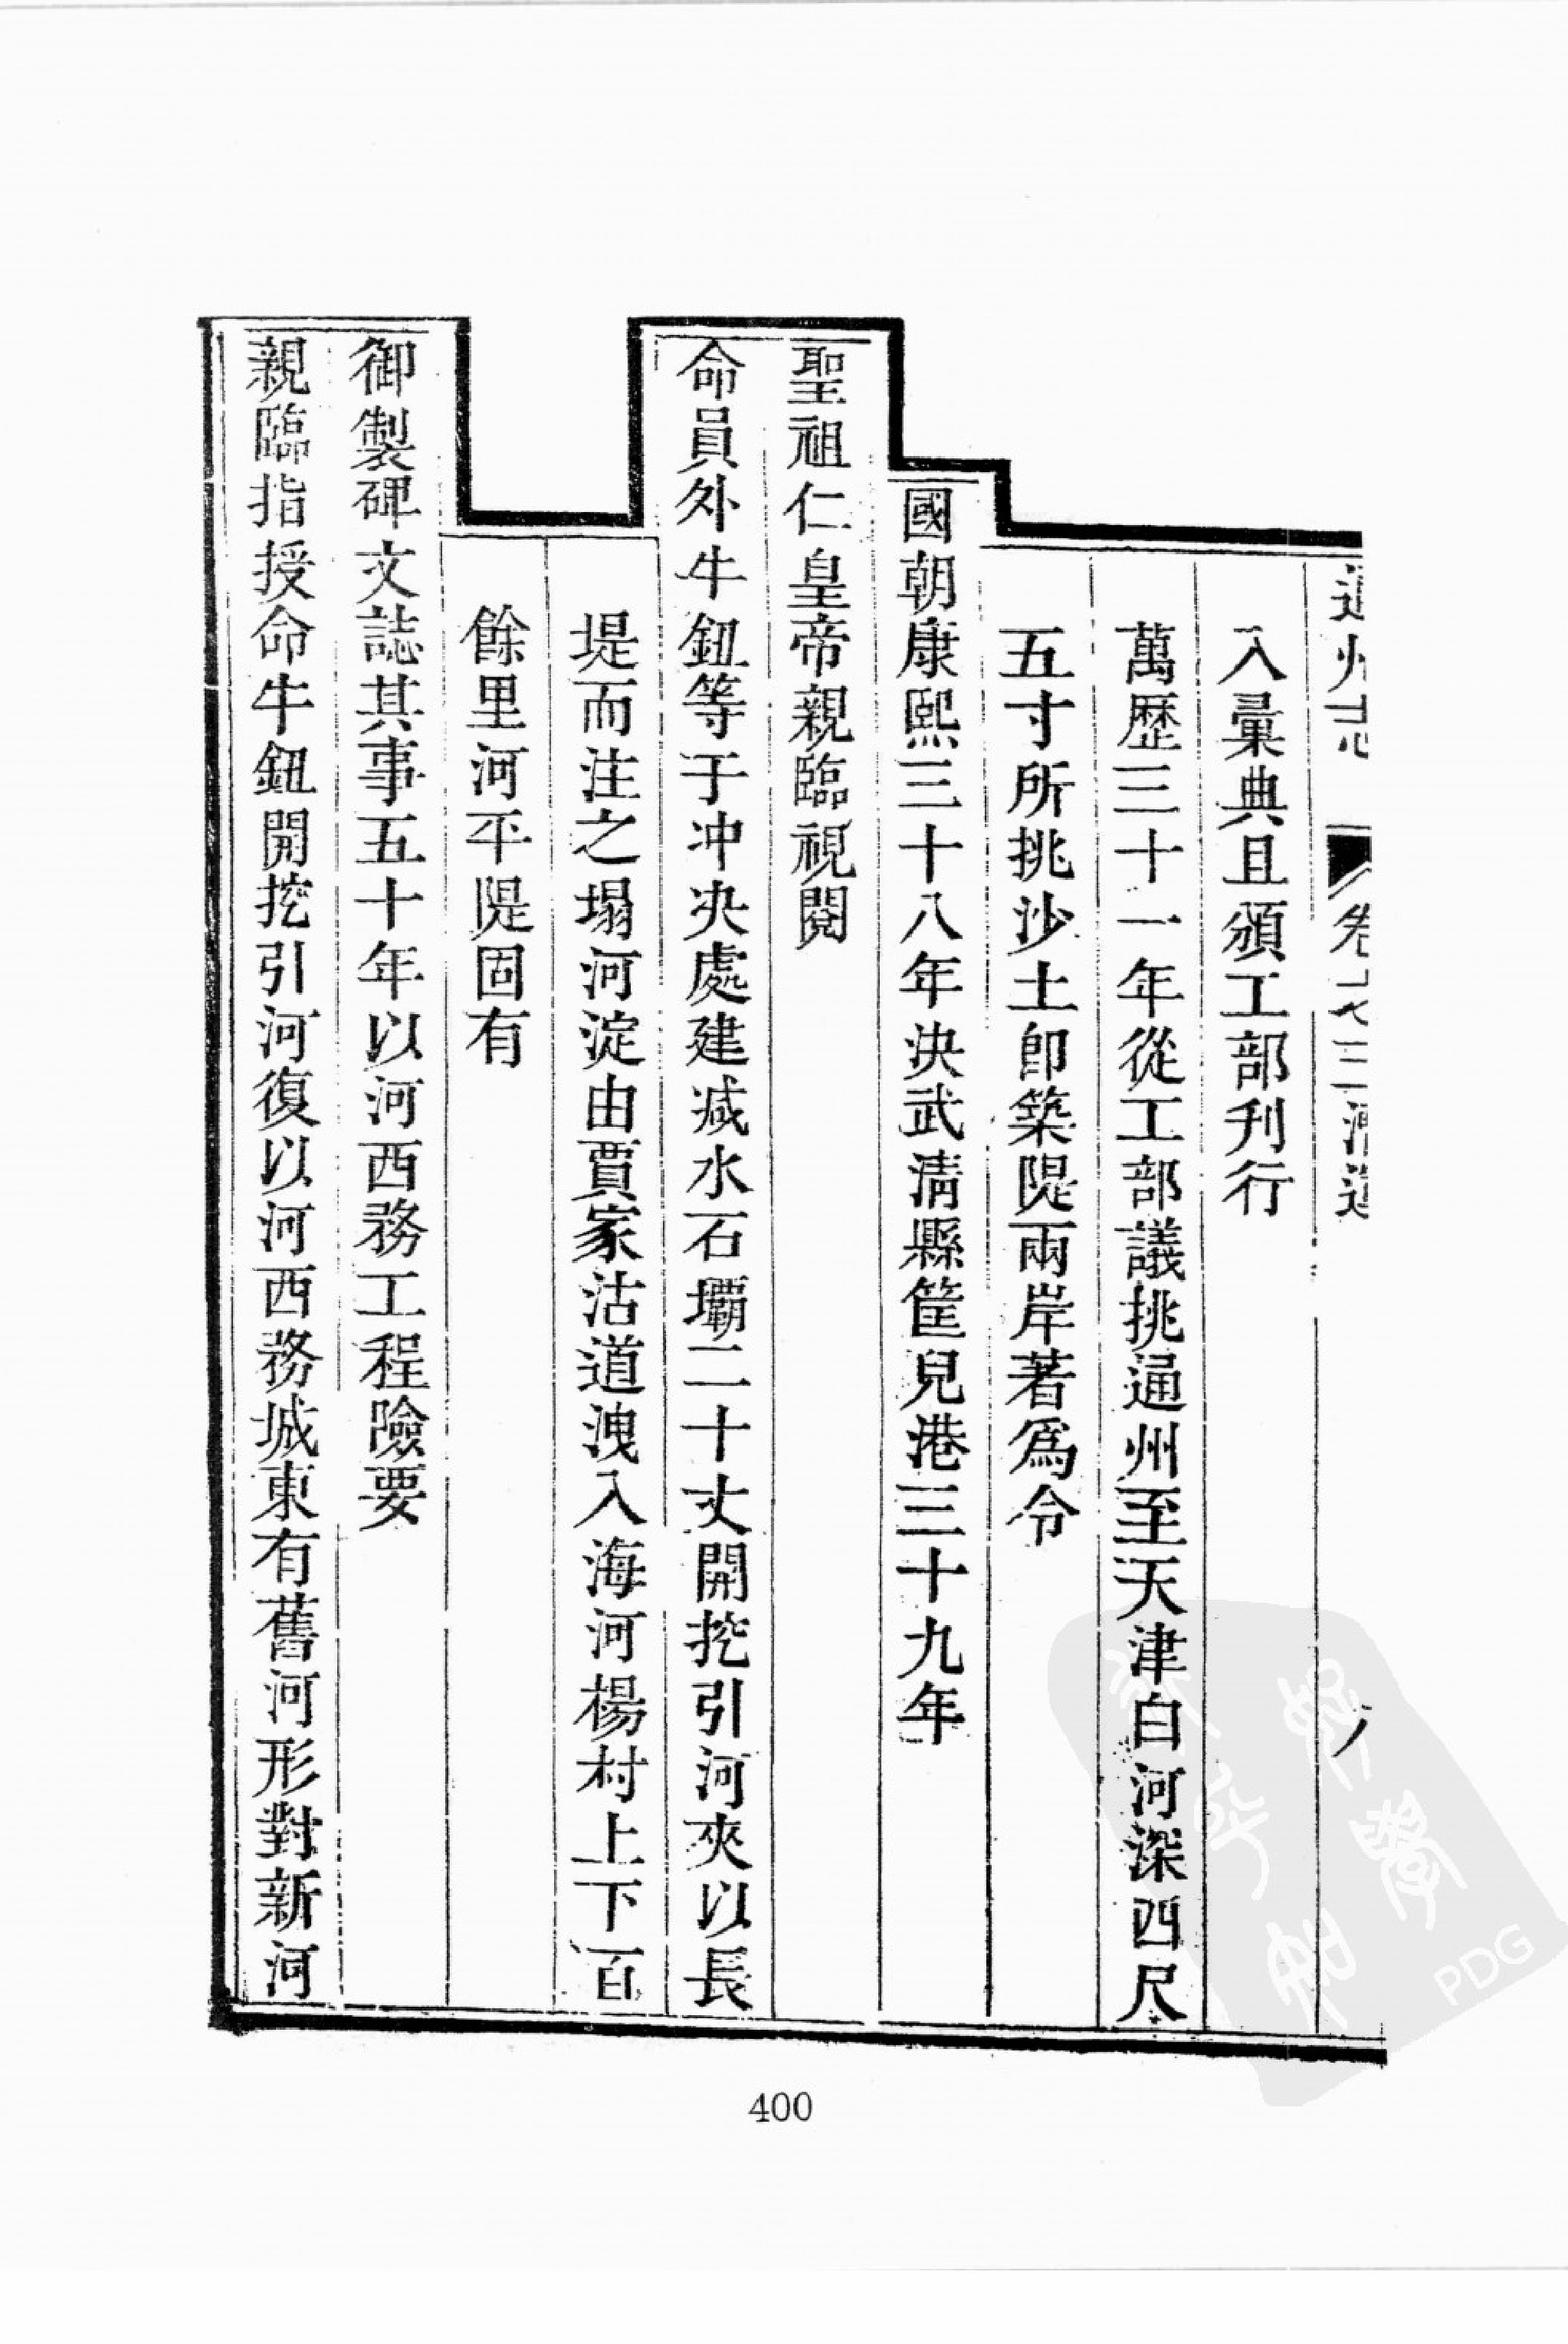 通州志 卷之三漕運 八
入彙典且頒工部刋行
萬歷三十一年從工部議挑通州至天津白河深四尺
五寸所挑沙土卽築隄兩岸著爲令
國朝康熙三十八年決武淸縣筐兒港三十九年
聖祖仁皇帝親臨視閱
命員外牛鈕等于冲决處建减水石壩二十丈開挖引河夾以長
堤而注之塌河淀由賈家沽道洩入海河楊村上下百
餘里河平隄固有
御製碑文誌其事五十年以河西務工程險要
親臨指授命牛鈕開挖引河復以河西務城東有舊河形對新河
400
PDG